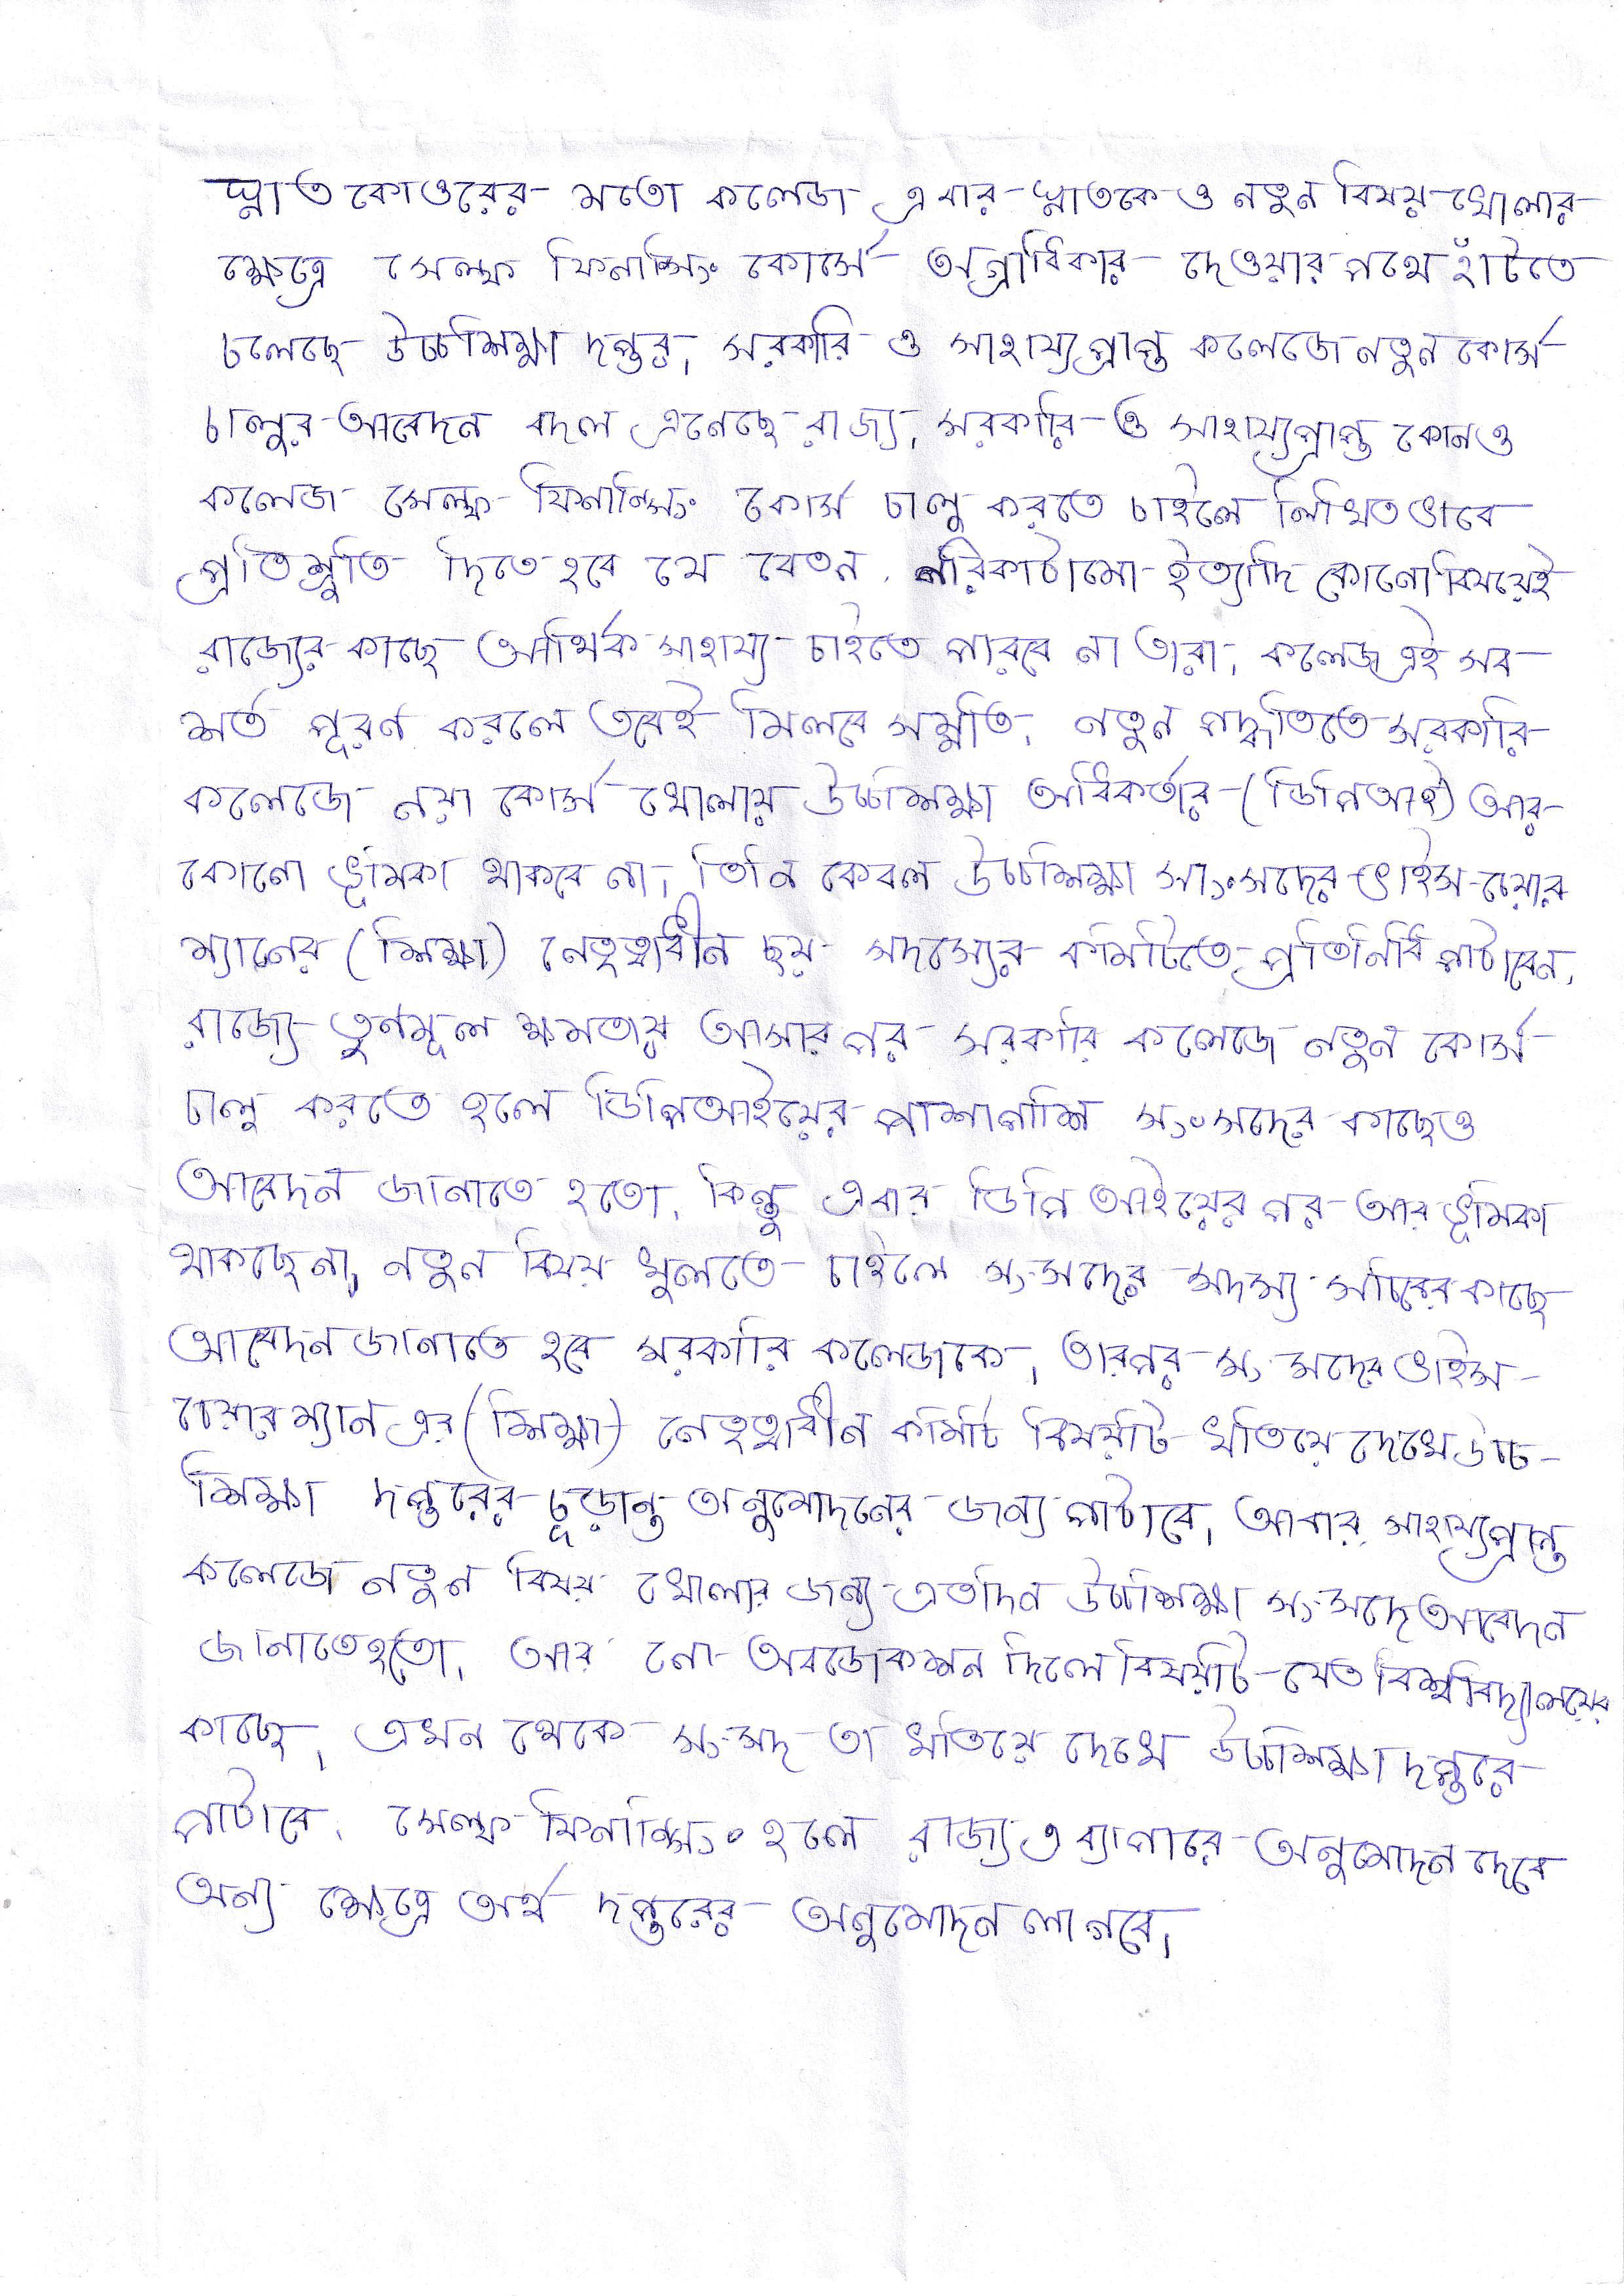 স্নাতকোত্তরের মতো কলেজে এবার স্নাতকেও নতুন বিষয় খোলার
ক্ষেত্রে সেল্ফ ফিনান্সিং কোর্সে অগ্রাধিকার দেওয়ার পথে হাঁটতে
চলেছে উচ্চশিক্ষা দপ্তর। সরকারি ও সাহায্যপ্রাপ্ত কলেজে নতুন কোর্স
চালুর আবেদন বদল এনেছে রাজ্য। সরকারি ও সাহায্যপ্রাপ্ত কোনও
কলেজ সেল্ফ ফিনান্সিং কোর্স চালু করতে চাইলে লিখিত ভাবে
প্রতিশ্রুতি দিতে হবে যে বেতন, পরিকাঠামো ইত্যাদি কোনো বিষয়েই
রাজ্যের কাছে আর্থিক সাহায্য চাইতে পারবে না তারা। কলেজ এই সব
শর্ত পূরণ করলে তবেই মিলবে সম্মতি। নতুন পদ্ধতিতে সরকারি
কলেজে নয়া কোর্স খোলায় উচ্চশিক্ষা অধিকর্তার (ডিপিআই) আর
কোনো ভূমিকা থাকবে না। তিনি কেবল উচ্চশিক্ষা সাংসদের ভাইস-চেয়ার
ম্যানের (শিক্ষা) নেতৃত্বাধীন ছয় সদস্যের কমিটিতে প্রতিনিধি পাঠাবেন।
রাজ্যে তৃণমূল ক্ষমতায় আসার পর সরকারি কলেজে নতুন কোর্স
চালু করতে হলে ডিপিআইয়ের পাশাপাশি সংসদের কাছেও
আবেদন জানাতে হতো। কিন্তু এবার ডিপিআইয়ের পর আর ভূমিকা
থাকছে না। নতুন বিষয় খুলতে চাইলে সংসদের সদস্য সচিবের কাছে
আবেদন জানাতে হবে সরকারি কলেজকে। তারপর সংসদের ভাইস-
চেয়ারম্যান এর (শিক্ষা) নেতৃত্বাধীন কমিটি বিষয়টি খতিয়ে দেখে উচ্চ-
শিক্ষা দপ্তরের চূড়ান্ত অনুমোদনের জন্য পাঠাবে। আবার সাহায্যপ্রাপ্ত
কলেজে নতুন বিষয় খোলার জন্য এতদিন উচ্চশিক্ষা সংসদে আবেদন
জানাতে হতো। আর নো অবজেকশন দিলে বিষয়টি যেত বিশ্ববিদ্যালয়ের
কাছে। এখন থেকে সংসদ তা খতিয়ে দেখে উচ্চশিক্ষা দপ্তরে
পাঠাবে। সেল্ফ ফিনান্সিং হলে রাজ্য এ ব্যাপারে অনুমোদন দেবে
অন্য ক্ষেত্রে অর্থ দপ্তরের অনুমোদন লাগবে।